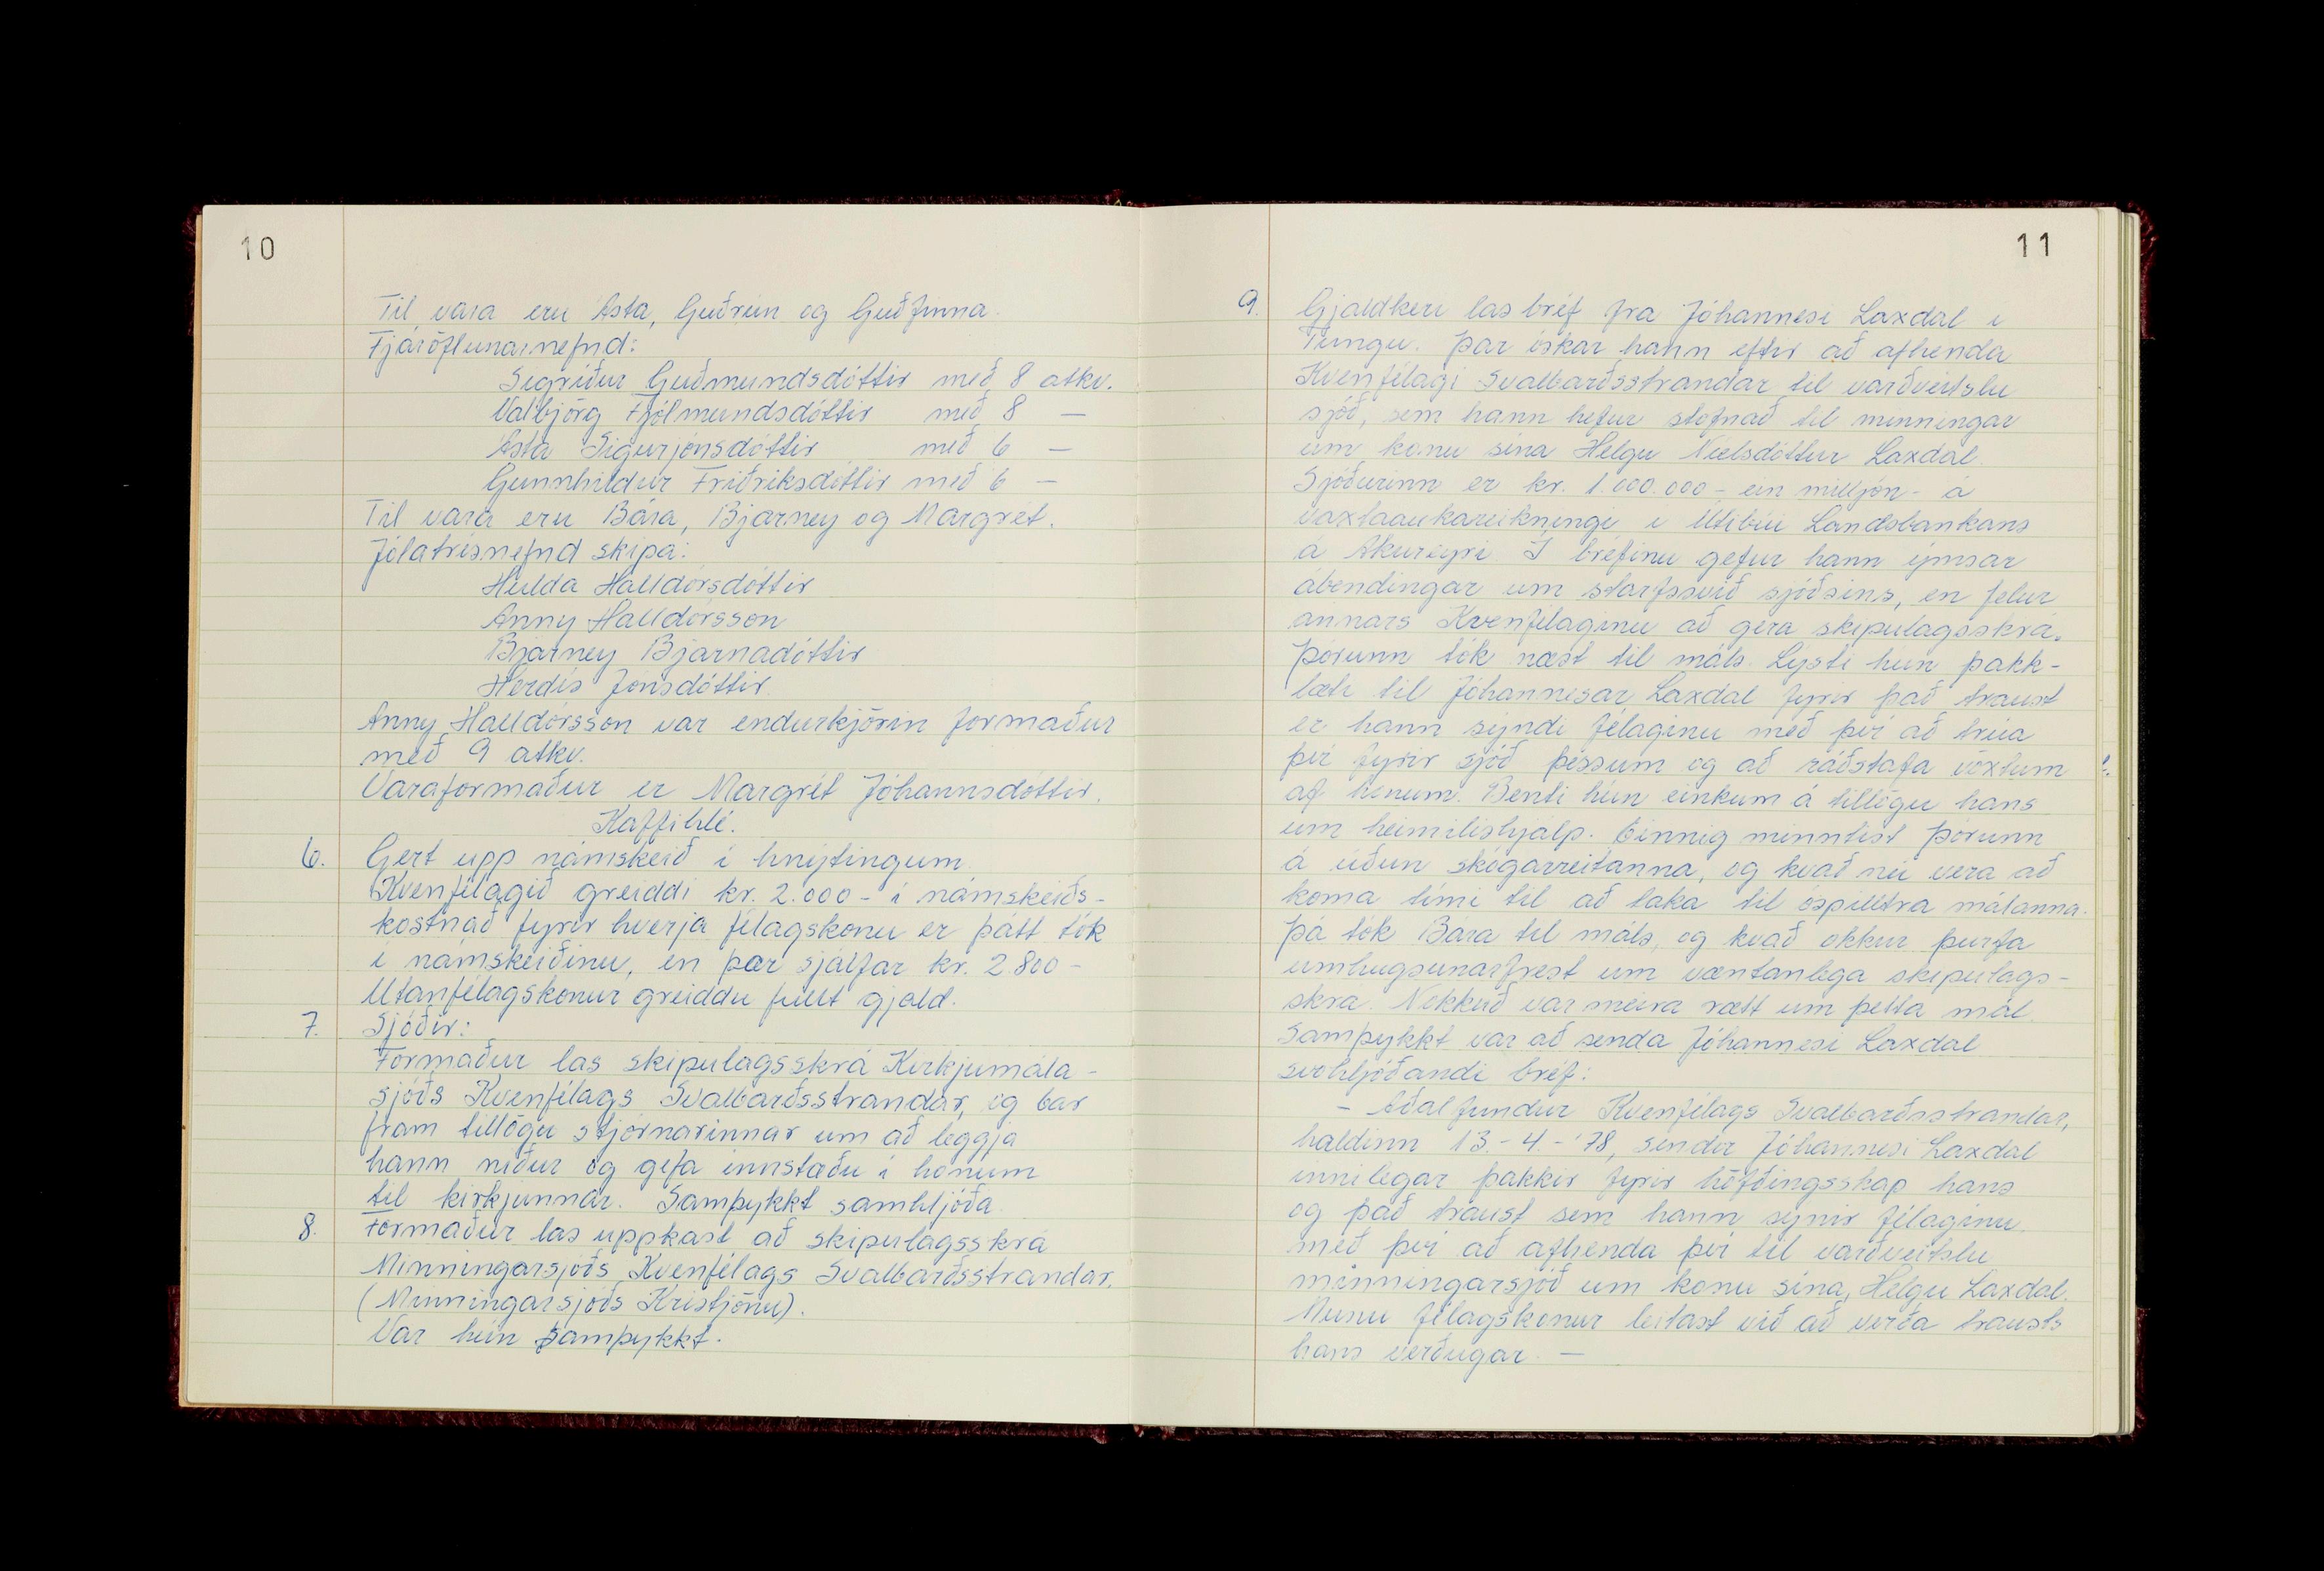 10
Til vara eru Ásta, Guðrún og Guðfinna.
Fjáröflunarnefnd:
Sigríður Guðmundsdóttir með 8 atkv.
Valbjörg Fjólmundsdóttir með 8 —
Ásta Sigurjónsdóttir með 6 —
Gunnhildur Friðriksdóttir með 6 —
Til vara eru Bára, Bjarney og Margrét.
Jólatrésnefnd skipa:
Hulda Halldórsdóttir
Anny Halldórsson
Bjarney Bjarnadóttir
Herdís Jónsdóttir.
Anny Halldórsson var endurkjörin formaður
með 9 atkv.
Varaformaður er Margrét Jóhannsdóttir.
Kaffihlé.
6. Gert upp námskeið í hnýtingum.
Kvenfélagið greiddi kr. 2.000- í námskeiðs-
kostnað fyrir hverja félagskonu er þátt tók
í námskeiðinu, en þær sjálfar kr. 2.800-
Utanfélagskonur greiddu fullt gjald.
7. Sjóðir:
Formaður las skipulagsskrá Kirkjumála-
sjóðs Kvenfélags Svalbarðsstrandar, og bar
fram tillögu stjórnarinnar um að leggja
hann niður og gefa innstæðu í honum
til kirkjunnar. Samþykkt samhljóða.
8. Formaður las uppkast að skipulagsskrá
Minningarsjóðs Kvenfélags Svalbarðsstrandar.
(Minningarsjóðs Kristjönu).
Var hún samþykkt.
11
9. Gjaldkeri las bréf frá Jóhannesi Laxdal í
Tungu. Þar óskar hann eftir að afhenda
Kvenfélagi Svalbarðsstrandar til varðveitslu
sjóð, sem hann hefur stofnað til minningar
um konu sína Helgu Níelsdóttur Laxdal.
Sjóðurinn er kr. 1.000.000 - ein milljón - á
vaxtaaukareikningi í Útibúi Landsbankans
á Akureyri. Í bréfinu gefur hann ýmsar
ábendingar um starfssvið sjóðsins, en felur
annars Kvenfélaginu að gera skipulagsskrá.
Þórunn tók næst til máls. Lýsti hún þakk-
læti til Jóhannesar Laxdal fyrir það traust
er hann sýndi félaginu með því að trúa
því fyrir sjóð þessum og að ráðstafa vöxtum
af honum. Benti hún einkum á tillögu hans
um heimilishjálp. Einnig minntist Þórunn
á úðun skógarreitanna, og kvað nú vera að
koma tími til að taka til óspilltra málanna.
Þá tók Bára til máls, og kvað okkur þurfa
umhugsunarfrest um væntanlega skipulags-
skrá. Nokkuð var meira rætt um þetta mál.
Samþykkt var að senda Jóhannesi Laxdal
svohljóðandi bréf:
- Aðalfundur Kvenfélags Svalbarðsstrandar,
haldinn 13.-4.-'78, sendir Jóhannesi Laxdal
innilegar þakkir fyrir höfðingsskap hans
og það traust sem hann sýnir félaginu
með því að afhenda því til varðveitslu
minningarsjóð um konu sína, Helgu Laxdal.
Munu félagskonur leitast við að verða trausts
hans verðugar. —